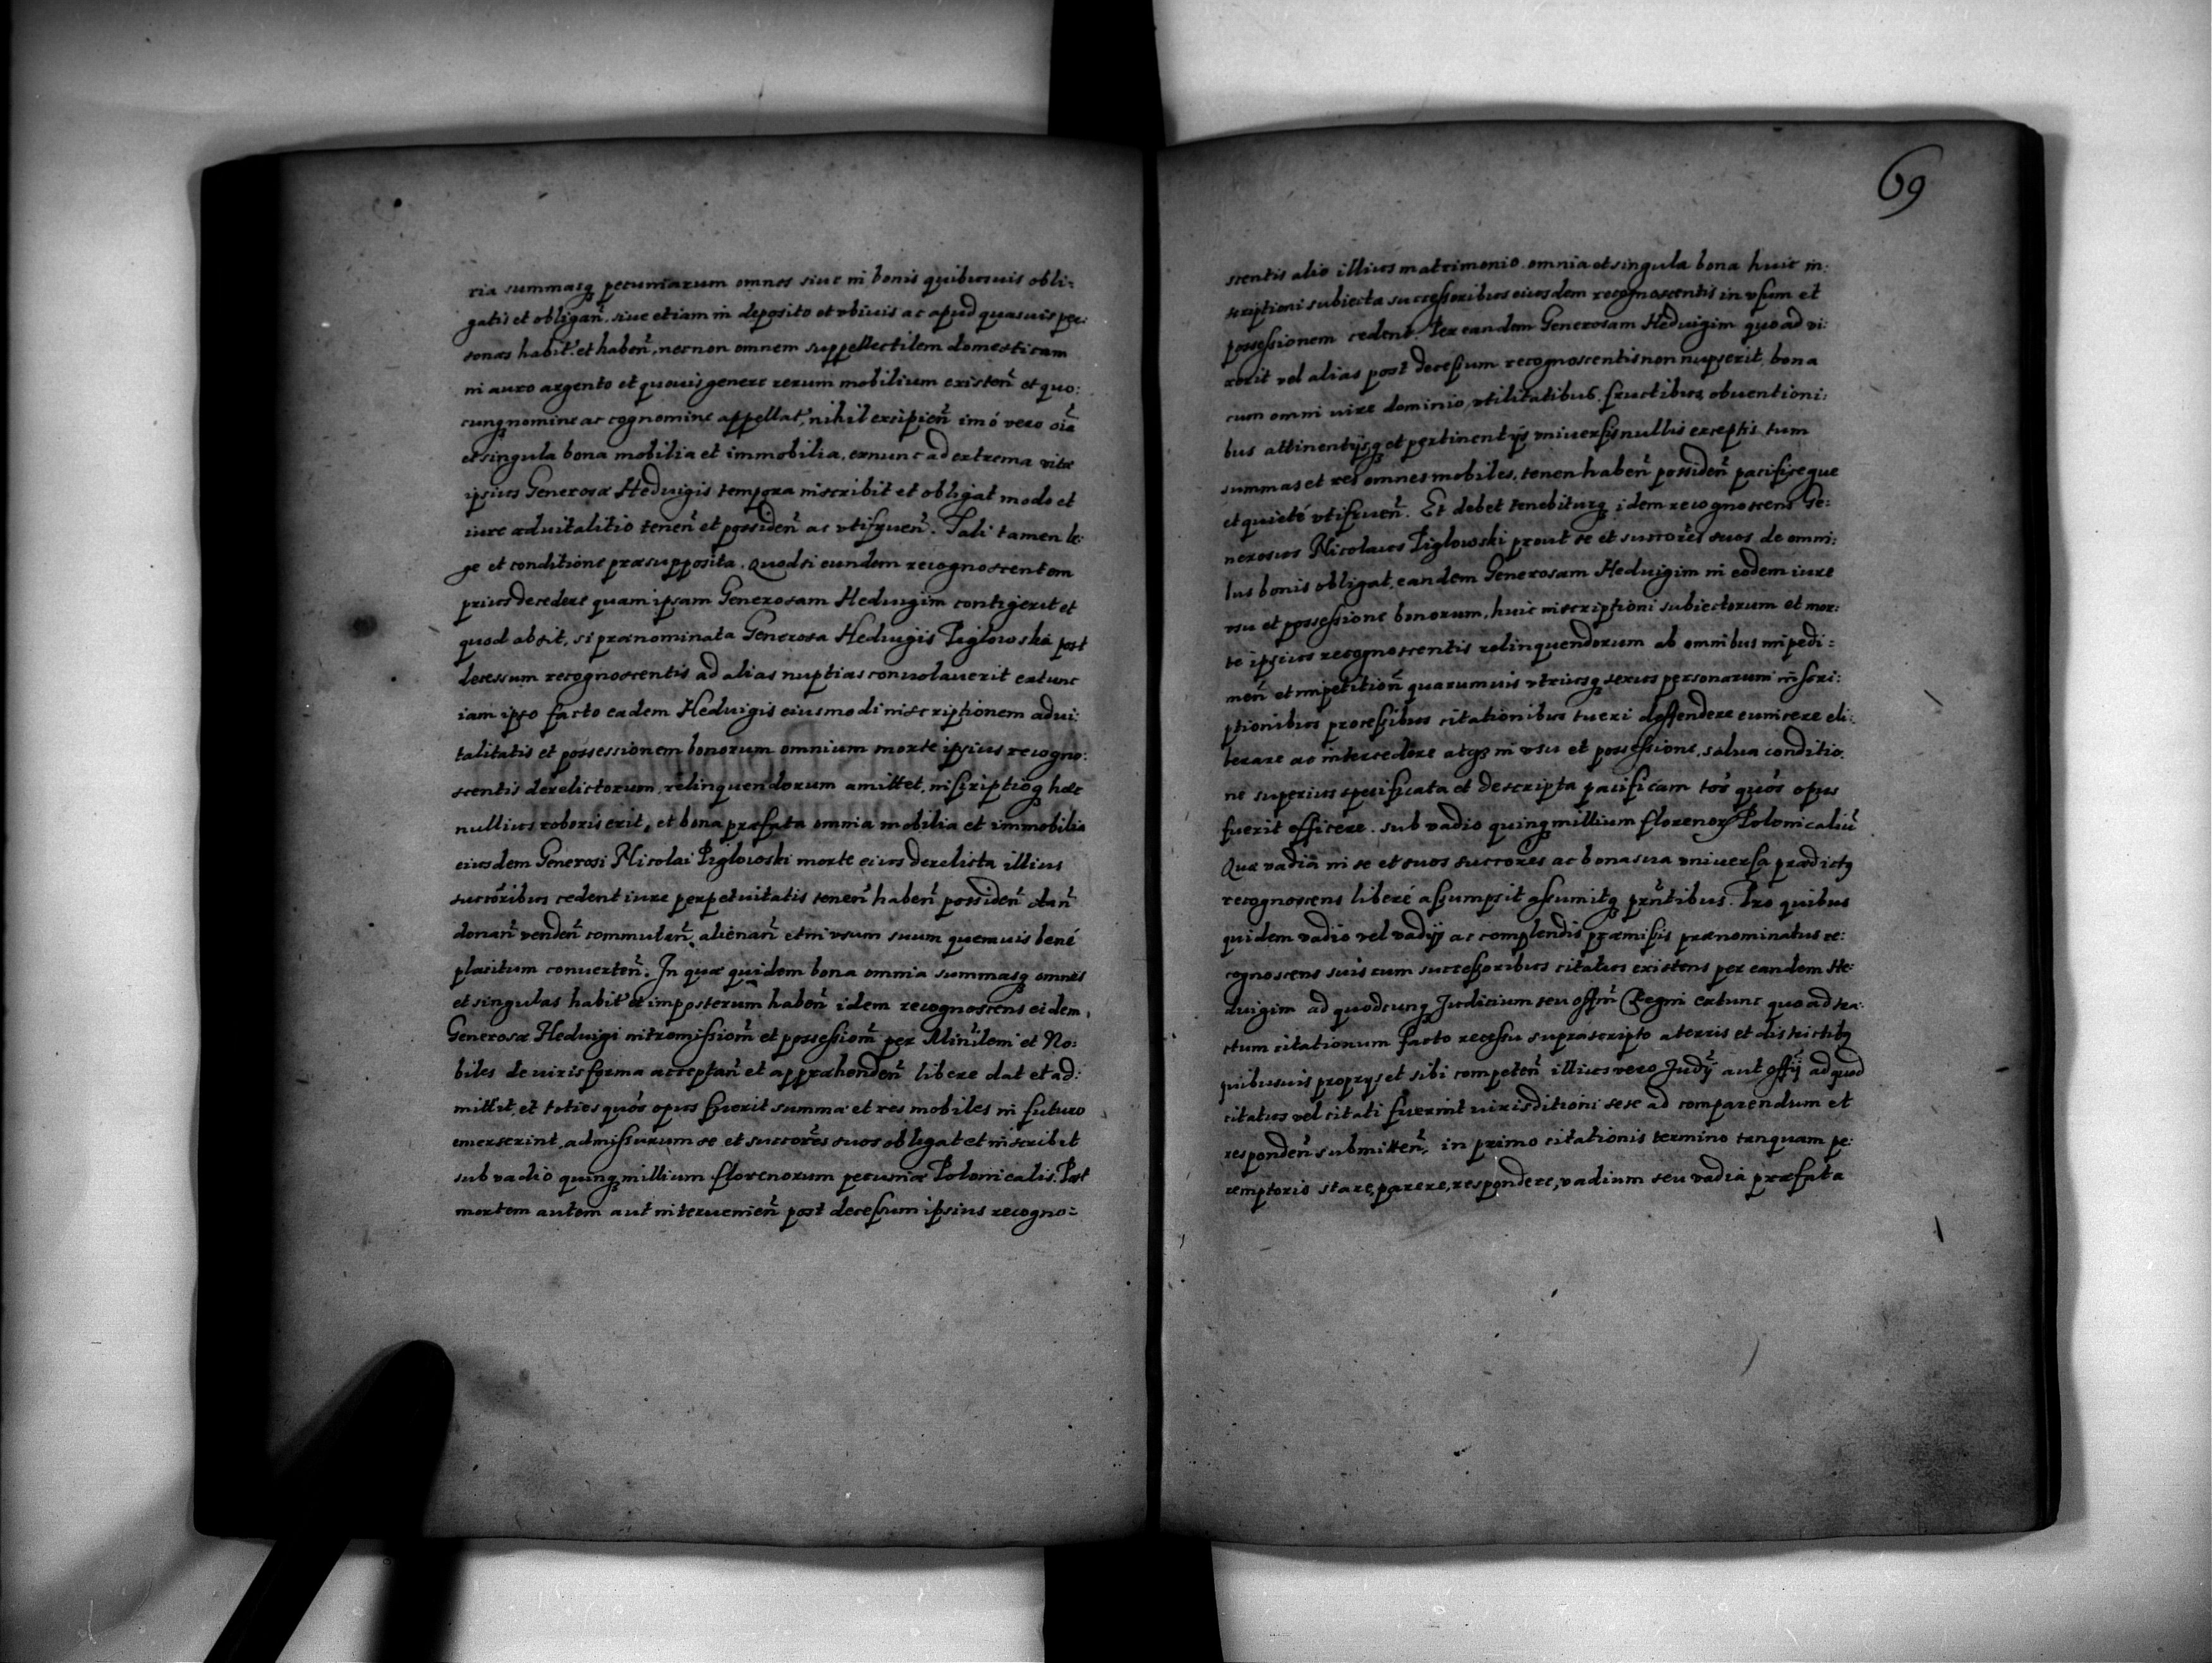 ria summasq pecuniarum omnes siue in bonis quibusuis obli:
gatis et obligań, siue etiam in deposito et vbiuis ac apud quasuis per:
sonas habit et habeń, necnon omnem suppellectilem domesticam
in auro argento et quouis genere rerum mobilium existeń et quo:
cunq nomine ac cognomine appellat, nihil excipień imó vero oia
et singula bona mobilia et immobilia, exnunc ad extrema vitæ
ipsius Generosæ Heduigis tempora inscribit et obligat modo et
iure aduitalitio teneń et possideń ac vtifrueń. Tali tamen le:
ge et conditione præsupposita. Quod si eundem recognoscentem
prius decedere quam ipsam Generosam Heduigim contigerit et
quod absit, si prænominata Generosa Heduigis Piglowska post
decessum recognoscentis ad alias nuptias conuolauerit extunc
iam ipso facto eadem Heduigis eiusmodi inscriptionem adui:
talitatis et possessionem bonorum omnium morte ipsius recogno:
scentis derelictorum, relinquendorum amittet, inscriptioq hæc
nullius roboris erit, et bona præfata omnia mobilia et immobilia
eiusdem Generosi Nicolai Piglowski morte eius derelicta illius
succoribus cedent iure perpetuitatis teneń habeń possideń dań
donań vendeń commutań, alienań et in vsum suum quemuis bené
placitum conuerteń. In quæ quidem bona omnia summasq omnes
et singulas habit et imposterum habeń idem recognoscens eidem
Generosæ Heduigi intromissiom et possessiom per Minilem et No:
biles de iuris forma acceptań et appræhendeń libere dat et ad:
mittit, et toties quos opus fuerit summæ et res mobiles in futuro
emerserint, admissurum se et succores suos obligat et inscribit
sub vadio quinq millium florenorum pecuniæ Polonicalis. Post
mortem autem aut interuenień post decessum ipsius recogno:
69
scentis alio illius matrimonio omnia et singula bona huic in:
scriptioni subiecta successoribus eiusdem recognoscentis in vsum et
possessionem cedent. Per eandem Generosam Heduigim quoad vi:
xerit vel alias post decessum recognoscentis non nupserit, bona
cum omni iure dominio, vtilitatibus, fructibus, obuentioni:
bus attinentijsq et pertinentijs vniuersis nullis exceptis, tum
summas et res omnes mobiles, teneń habeń possideń pacifice que
et quieté vtifrueń. Et debet tenebiturq idem recognoscens Ge:
nerosus Nicolaus Piglowski prout se et succores suos de omni:
bus bonis obligat, eandem Generosam Heduigim in eodem iure
vsu et possessione bonorum, huic inscriptioni subiectorum et mor:
te ipsius recognoscentis relinquendorum ab omnibus impedi:
meń et impetitioń quarumuis vtriusq sexus personarum inscri:
ptionibus processibus citationibus tueri deffendere euincere eli:
berare ac intercedere atq in vsu et possessione, salua conditio:
ne superius specificata et descripta pacificam tos quos opus
fuerit efficere. sub vadio quinq millium florenor Polonicaliu
Quæ vadia in se et suos succores ac bona sua vniuersa prædictq
recognoscens liberé assumpsit assumitq prntibus. Pro quibus
quidem vadio vel vadijs ac complendis præmissis prænominatus re:
cognoscens suis cum successoribus citatus existens per eandem He:
duigim ad quodcunq Judicium seu offm Regni extunc quoad tra:
ctum citationum facto recessu suprascripto a terris et districtibq
quibusuis proprijs et sibi competeń illius vero Judij aut offij ad quod
citatus vel citati fuerint iurisditioni sese ad comparendum et
respondeń submitteń, in primo citationis termino tanquam pe:
remptorio stare, parere, respondere, vadium seu vadia præfata